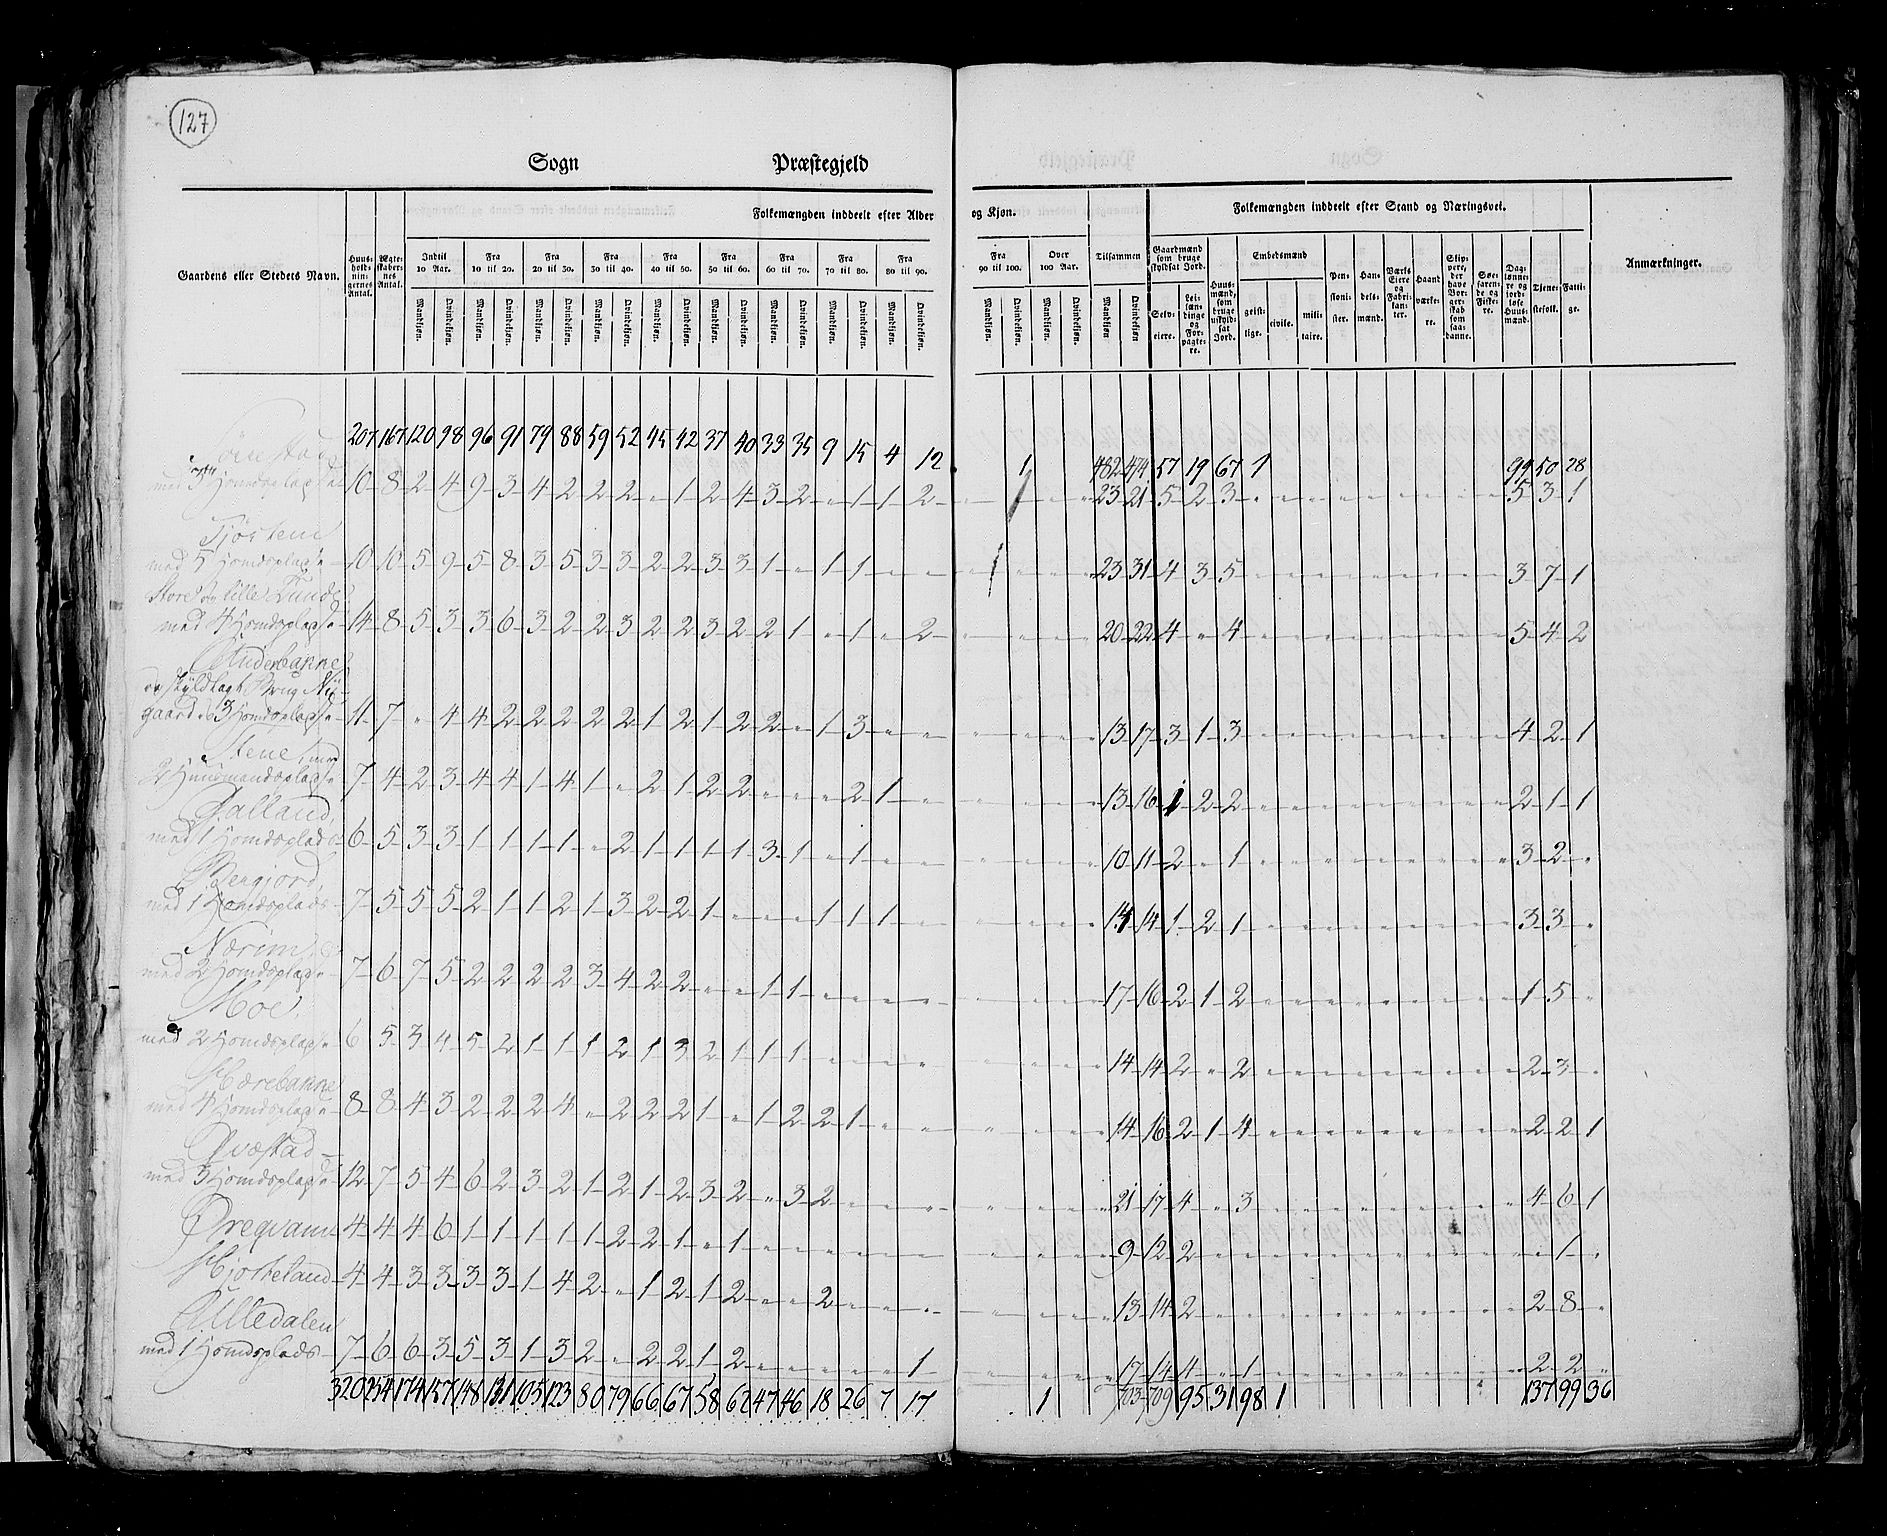 127
Sogn Præstegjeld
Gaardens eller Stedets Navn. Huus-holdnin-gernes Antal. Ægte-skaber-nes Antal. Folkemængden inddeelt efter Alder og Kjøn. Folkemængden inddeelt efter Stand og Næringsvei. Anmærkninger.
Indtil 10 Aar. Fra 10 til 20. Fra 20 til 30. Fra 30 til 40. Fra 40 til 50. Fra 50 til 60. Fra 60 til 70. Fra 70 til 80. Fra 80 til 90. Fra 90 til 100. Over 100 Aar. Tilsammen Gaardmænd som bruge skyldsat Jord. Huus-mænd, som bruge uskyld-sat Jord. Embedsmænd Pen-sioni-ster. Han-dels-mænd. Værks Eiere og Fabri-kan-ter. Haand værke-re. Slip-pere, der have Bor-ger-skab som saa-danne. Søe-farende og Fiske-re. Dag-lønne-re og jord-løse Huus-mænd. Tjene-stefolk. Fatti-ge.
Mandkjøn. Qvindekjøn. Mandkjøn. Qvindekjøn. Mandkjøn. Qvindekjøn. Mandkjøn. Qvindekjøn. Mandkjøn. Qvindekjøn. Mandkjøn. Qvindekjøn. Mandkjøn. Qvindekjøn. Mandkjøn. Qvindekjøn. Mandkjøn. Qvindekjøn. Mandkjøn. Qvindekjøn. Mandkjøn. Qvindekjøn. Mandkjøn Qvindekjøn Selv-eiere. Lei-lændinge og For-pagte-re. geist-lige. civile. mili-taire.
207 167 120 98 96 91 79 88 59 52 45 42 37 40 33 35 9 15 4 12 1 482 474 57 19 67 1 99 50 28
med 3 Homdspladse 10 8 2 4 9 3 4 2 2 2 " 1 2 4 3 2 " 1 1 2 23 21 5 2 3 5 3 1
med 5 Homdspladse 10 10 5 9 5 8 3 5 3 3 2 2 3 3 1 " 1 1 23 31 4 3 5 3 7 1
Store og lille Tunde
med 4 Homdspladse 14 8 5 3 3 6 3 2 2 3 2 2 3 2 2 1 " 1 " 2 20 22 4 " 4 5 4 2
skyldlagt Brug Ny-
gaard 3 Homdspladse 11 7 " 4 4 2 2 2 2 2 1 2 1 2 2 " 1 3 13 17 3 1 3 4 2 1
Stene, med
2 Huusmandspladse 7 4 2 3 4 4 1 4 1 " 2 1 2 2 " " " 2 1 13 16 1 2 2 2 1 1
med 1 Homdsplads 6 5 3 3 1 1 1 1 " 2 1 1 1 1 3 1 " 1 10 11 2 " 1 3 2 "
med 1 Homdsplads 7 5 5 5 2 1 1 2 1 3 2 2 1 " " " 1 1 1 14 14 1 2 1 3 3 "
Nærim,
med 2 Homdspladse 7 6 7 5 2 2 2 2 3 4 2 2 " " 1 1 17 16 2 1 2 1 5 "
Moe,
med 2 Homdspladse 6 5 3 4 5 2 1 1 1 2 1 3 2 1 1 1 14 14 2 " 2 2 3 "
med 4 Homdspladse 8 8 4 3 2 2 2 4 " 2 2 2 1 " 1 2 2 1 14 16 2 1 4 2 2 1
Qvæstad
med 3 Homdspladse 12 7 5 4 6 2 3 2 1 2 1 2 3 2 " 3 2 21 17 4 " 3 4 6 1
4 4 4 6 1 1 1 1 1 2 2 1 " 1 9 12 2 1 "
Hjorteland 4 4 3 3 3 3 1 4 2 " 1 2 1 2 " " 2 13 14 2 2 8 "
Ulledalen
med 1 Homdsplads 7 6 6 3 5 3 1 3 2 " 2 2 1 2 1 17 14 4 " 1 2 2 "
320 254 174 157 148 131 105 123 80 79 66 67 58 62 47 46 18 26 7 17 1 703 709 95 31 98 1 137 99 36